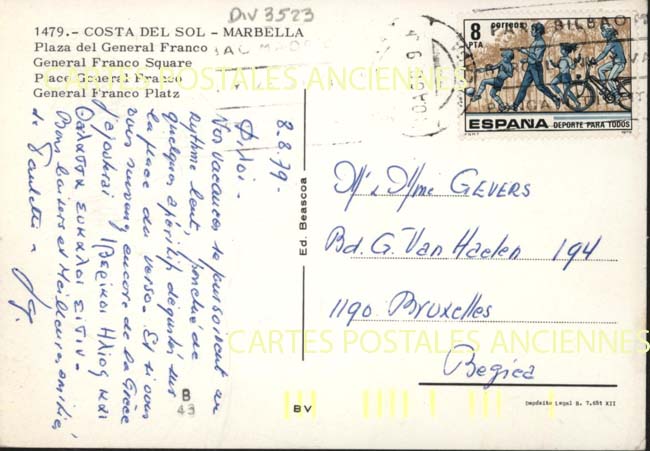 Div 3523
1479.- COSTA DEL SOL - MARBELLA
Plaza del General Franco
General Franco Square
Place General Franco
General Franco Platz
8
PTA
correos
BILBAO
ESPAÑA DEPORTE PARA TODOS
CARTES POSTALES ANCIENNES
8.8.79.
Φίλοι.
Nos vacances se poursuivent au
rythme lent, ponctué de
quelques apéritifs dégustés sur
la place du verso. Et si vous
avez encore de la Grèce
Ηλιος και
Θαλασσα
Bons baisers et Meilleures amitiés
de Paulette
Ed. Beascoa
Mr & Mme GEVERS
Bd. G. Van Haelen 194
1190 Bruxelles
Begica
CARTES POSTALES ANCIENNES
B
43
BV
Depósito Legal B. 7.681 XII